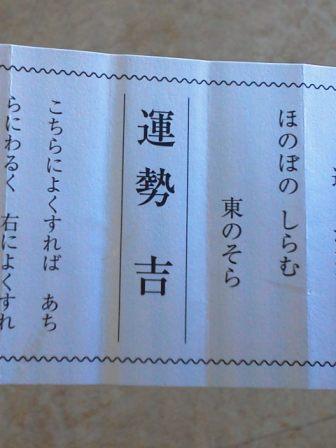 ほのぼの しらむ
東のそら
運勢 吉
こちらによくすれば あち
らにわるく 右によくすれ